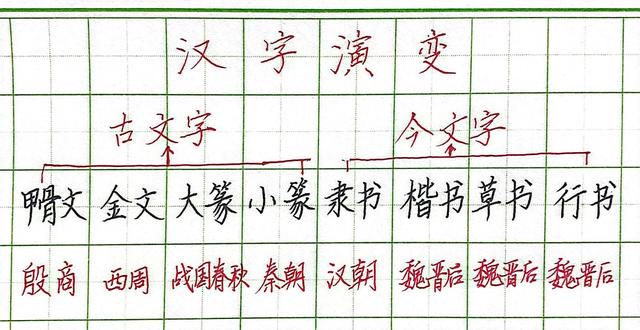 汉字演变
古文字 今文字
甲骨文 金文 大篆 小篆 隶书 楷书 草书 行书
殷商 西周 战国春秋 秦朝 汉朝 魏晋后 魏晋后 魏晋后